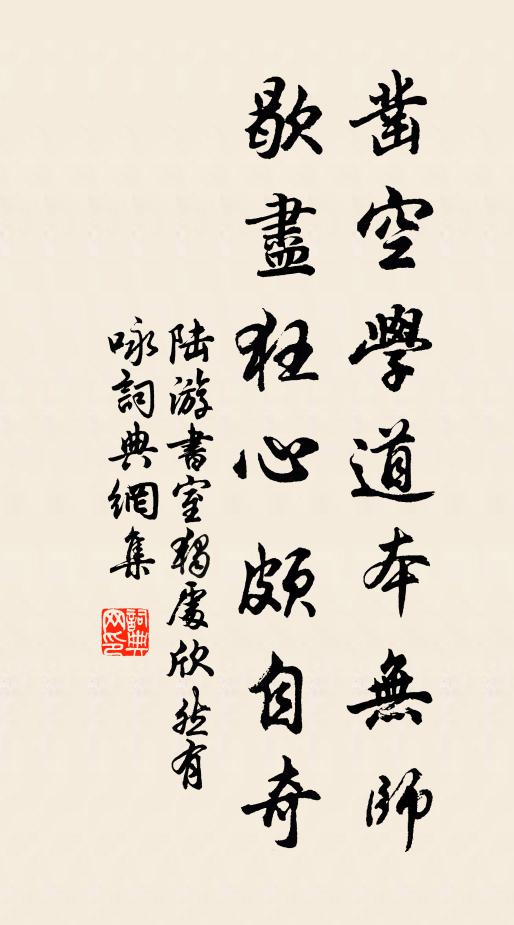 凿空學道本無師
歇盡狂心頗自奇
陆游書室獨處欣然有
咏詞典網集
詞典
网印